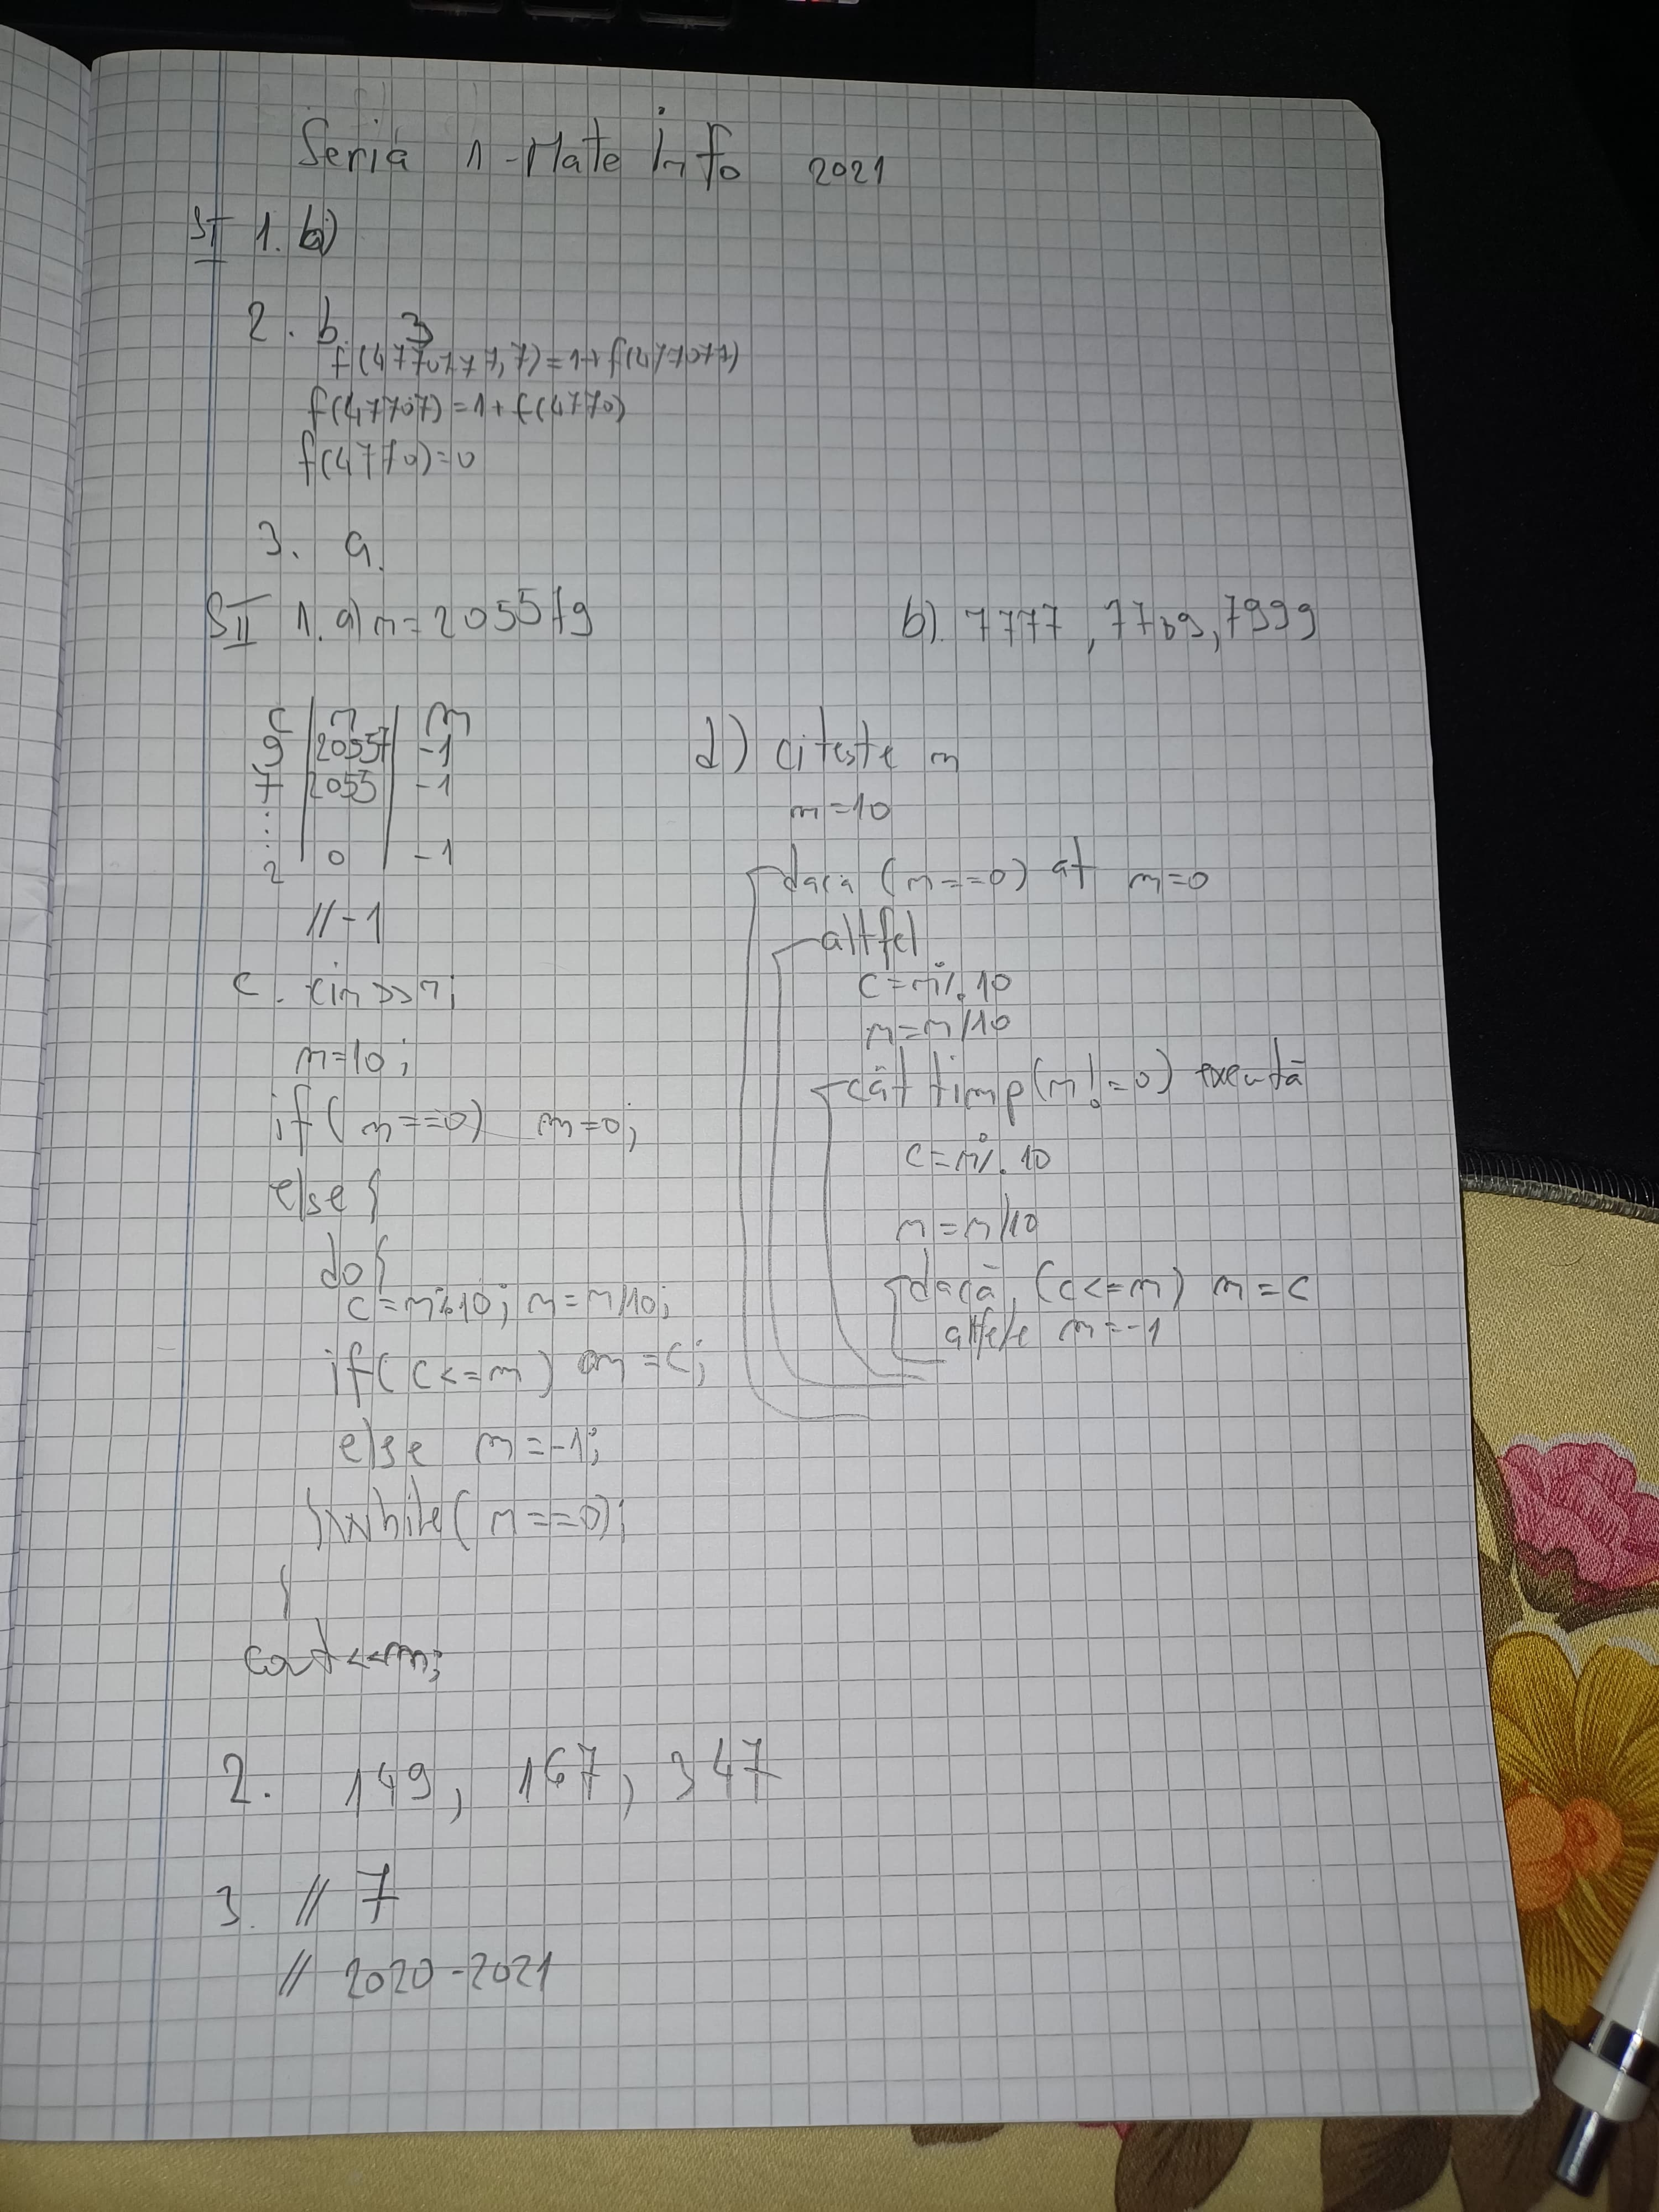 Seria 1-Mate info 2021
SI 1. b)
2. b. 3
f(4770777,7)=1+f(477077)
f(47707)=1+f(4770)
f(4770)=0
3. a.
SII 1. a) n=205579
b). 7777, 7789, 7999
c | n | m
9 | 20557 | -1
7 | 2055 | -1
⋮
2 0 -1
//-1
c. cin>>n;
m=10;
if(n==0) m=0;
else {
do{
c=n%10; n=n/10;
if(c<=m) m=c;
else m=-1;
}while(n==0);
}
cout<<m;
d) citeste n
m=10
daca (n==0) at m=0
altfel
c=n%10
n=n/10
cât timp(n!=0) executã
c=n%10
n=n/10
dacã (c<=m) m=c
m=-1
2. 149, 167, 347
3. // 7
// 2020-2021